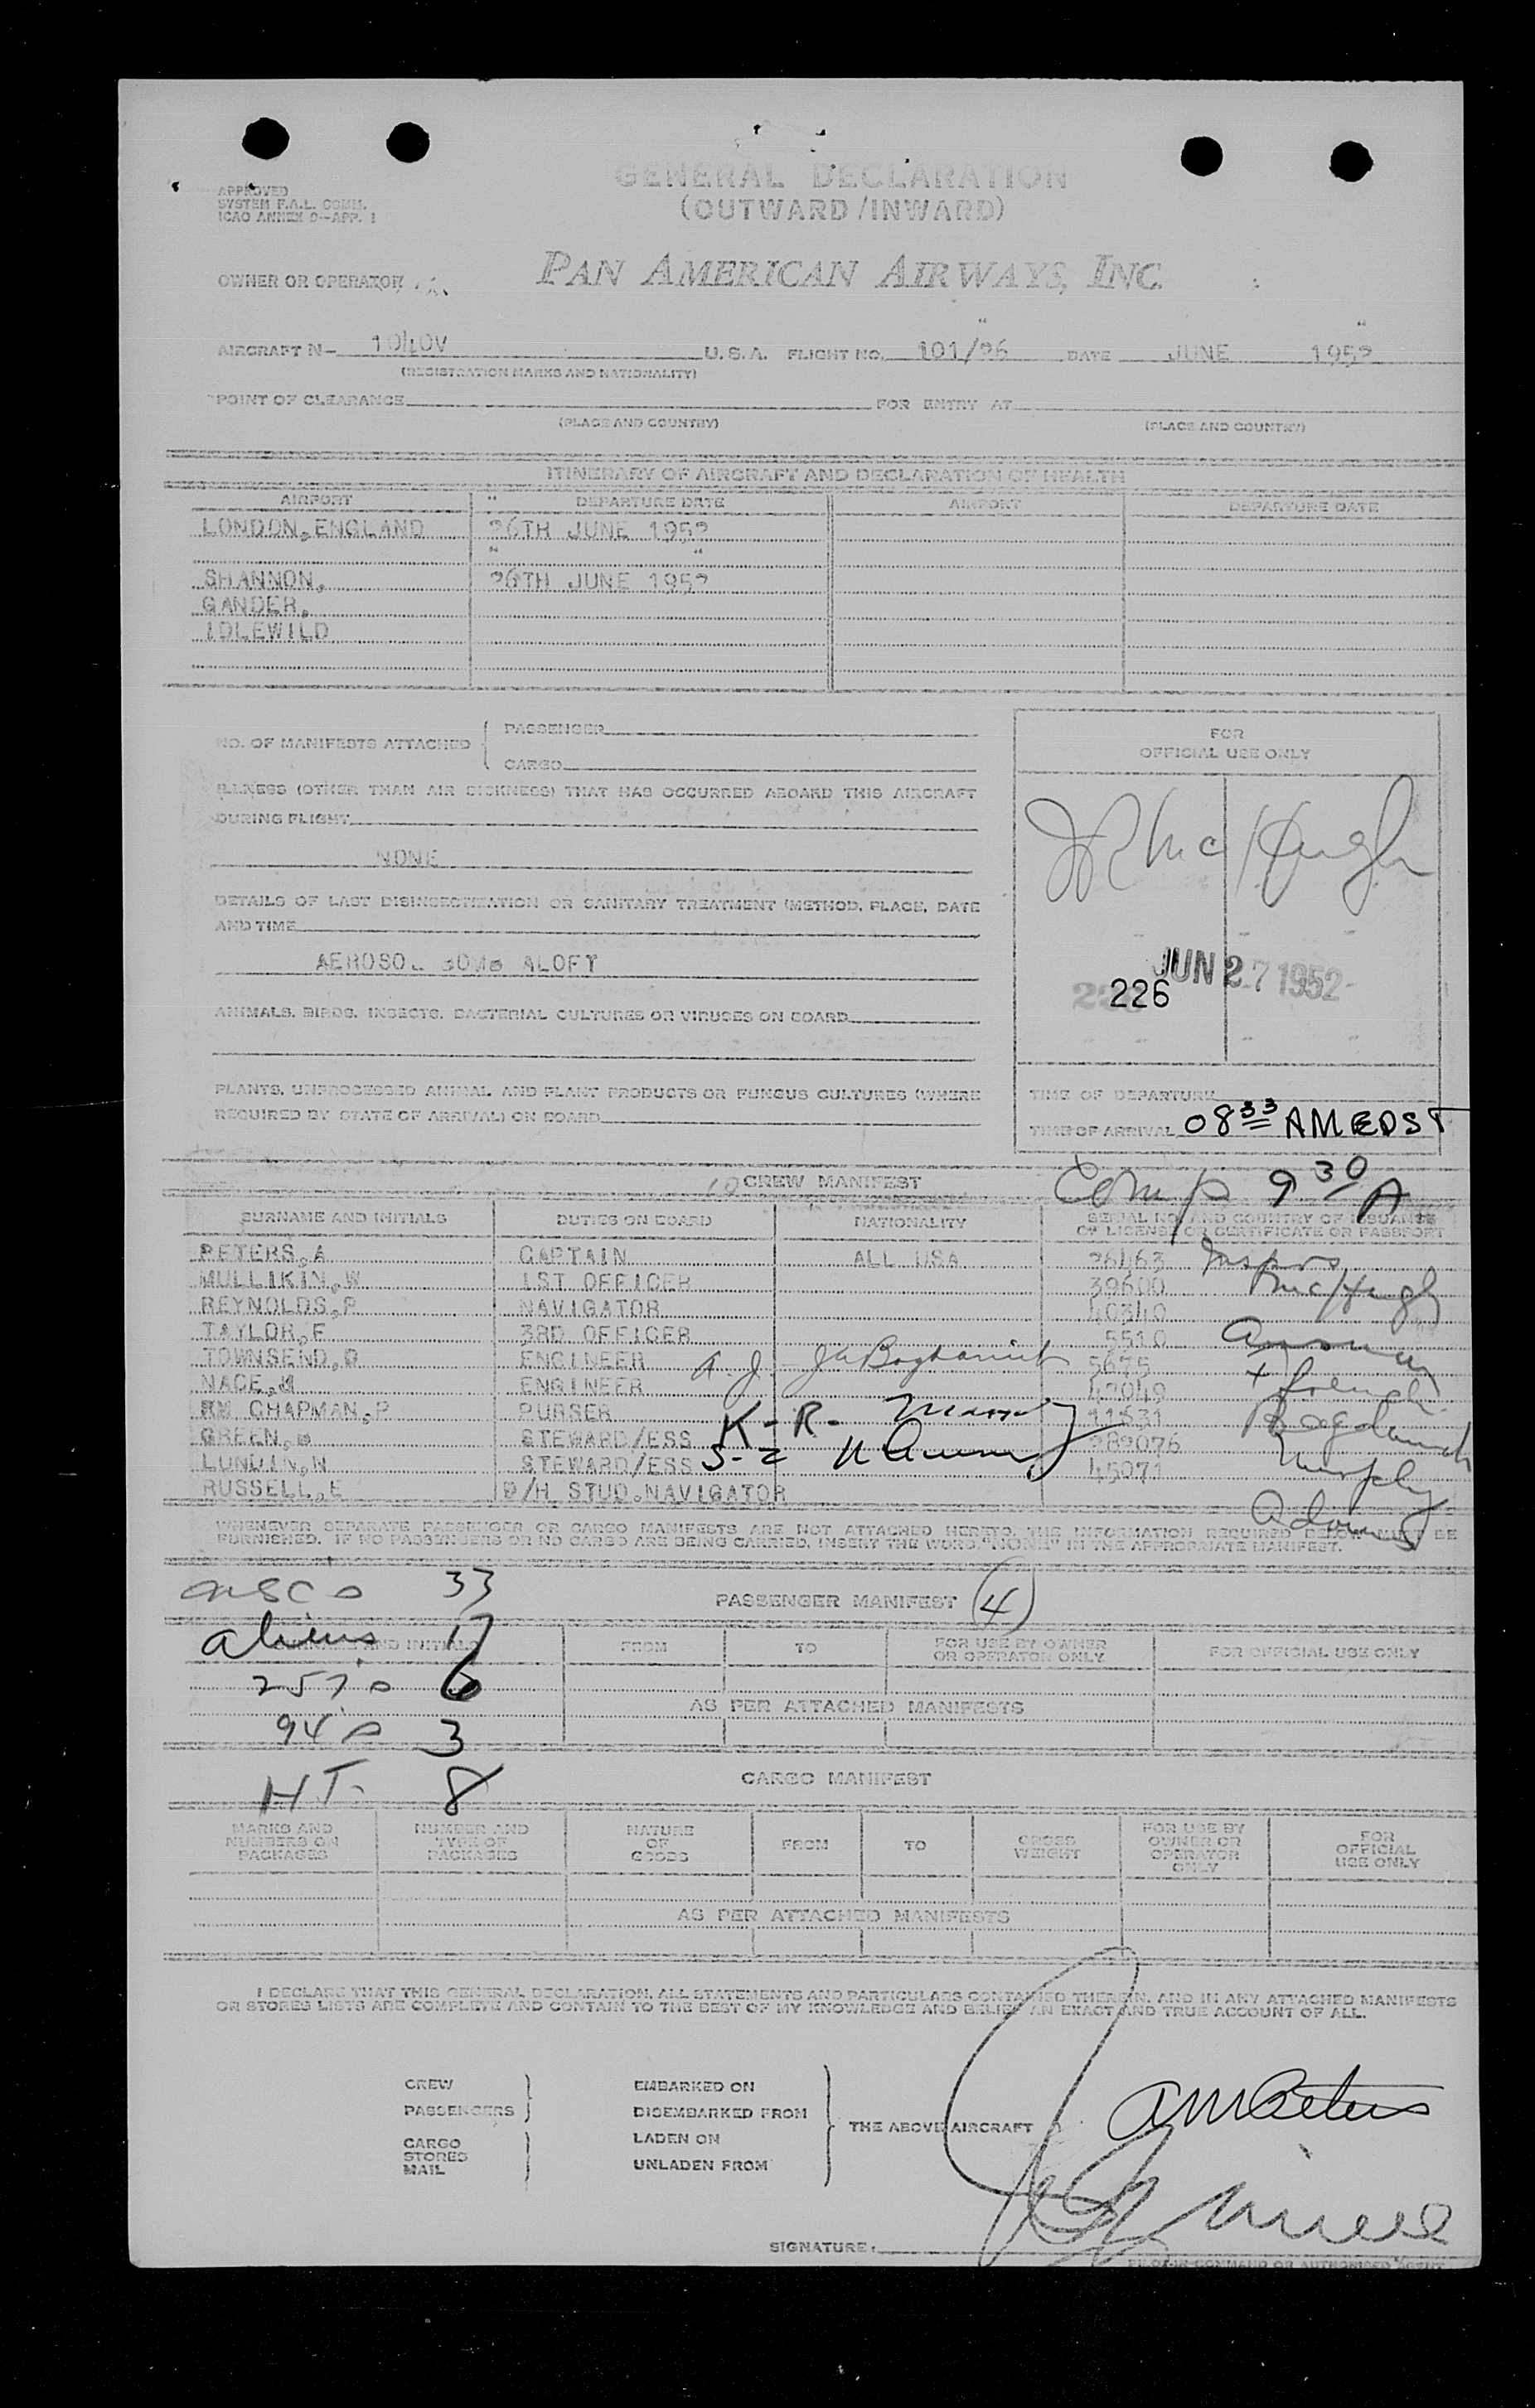 GENERAL DECLARATION
(OUTWARD/INWARD)
APPROVED
SYSTEM F.A.L. COMM.
ICAO ANNEX 9-APP. 1
OWNER OR OPERATOR
PAN AMERICAN AIRWAYS, INC.
AIRCRAFT N- 1040V U.S.A. FLIGHT NO. 101/26 DATE JUNE 1952
(REGISTRATION MARKS AND NATIONALITY)
POINT OF CLEARANCE FOR ENTRY AT
(PLACE AND COUNTRY) (PLACE AND COUNTRY)
ITINERARY OF AIRCRAFT AND DECLARATION OF HEALTH
AIRPORT DEPARTURE DATE AIRPORT DEPARTURE DATE
LONDON,ENGLAND 26TH JUNE 1952
SHANNON, 26TH JUNE 1952
GANDER,
IDLEWILD
NO. OF MANIFESTS ATTACHED
PASSENGER
CARGO
ILLNESS (OTHER THAN AIR SICKNESS) THAT HAS OCCURRED ABOARD THIS AIRCRAFT
DURING FLIGHT
NONE
DETAILS OF LAST DISINSECTIZATION OR SANITARY TREATMENT (METHOD, PLACE, DATE
AND TIME
AEROSOL BOMB ALOFT
ANIMALS, BIRDS, INSECTS, BACTERIAL CULTURES OR VIRUSES ON BOARD
PLANTS, UNPROCESSED ANIMAL AND PLANT PRODUCTS OR FUNGUS CULTURES (WHERE
REQUIRED BY STATE OF ARRIVAL) ON BOARD
FOR
OFFICIAL USE ONLY
McHugh
JUN 27 1952
226
TIME OF DEPARTURE
TIME OF ARRIVAL 0833 AM EDST
Comp 9 30 A
10 CREW MANIFEST
SURNAME AND INITIALS DUTIES ON BOARD NATIONALITY SERIAL NO. AND COUNTRY OF ISSUANCE
OF LICENSE OR CERTIFICATE OR PASSPORT
PETERS,A CAPTAIN ALL USA 26463 Insprs
MULLIKIN,W 1ST OFFICER 39600 McHugh
REYNOLDS,P NAVIGATOR 40340
TAYLOR,F 3RD OFFICER 5510
TOWNSEND,D ENGINEER 5675
NACE, ENGINEER 42049
CHAPMAN,P PURSER K-R- 11631
GREEN, STEWARD/ESS S-2 282076
LUNDIN,N STEWARD/ESS 45071 Murphy
RUSSELL,E D/H STUD.NAVIGATOR Adams
WHENEVER SEPARATE PASSENGER OR CARGO MANIFESTS ARE NOT ATTACHED HERETO, THE INFORMATION REQUIRED BELOW MUST BE
FURNISHED. IF NO PASSENGERS OR NO CARGO ARE BEING CARRIED, INSERT THE WORD "NONE" IN THE APPROPRIATE MANIFEST.
33
PASSENGER MANIFEST (4)
Aliens 17
AND INITIALS FROM TO FOR USE BY OWNER
OR OPERATOR ONLY FOR OFFICIAL USE ONLY
257 6
AS PER ATTACHED MANIFESTS
94 3
HT. 8
CARGO MANIFEST
MARKS AND
NUMBERS ON
PACKAGES
NUMBER AND
TYPE OF
PACKAGES
NATURE
OF
GOODS
FROM
TO
GROSS
WEIGHT
FOR USE BY
OWNER OR
OPERATOR
ONLY
FOR
OFFICIAL
USE ONLY
AS PER ATTACHED MANIFESTS
I DECLARE THAT THIS GENERAL DECLARATION, ALL STATEMENTS AND PARTICULARS CONTAINED THEREIN, AND IN ANY ATTACHED MANIFESTS
OR STORES LISTS ARE COMPLETE AND CONTAIN TO THE BEST OF MY KNOWLEDGE AND BELIEF AN EXACT AND TRUE ACCOUNT OF ALL.
CREW
PASSENGERS
CARGO
STORES
MAIL
EMBARKED ON
DISEMBARKED FROM
LADEN ON
UNLADEN FROM
THE ABOVE AIRCRAFT
AM Peters
SIGNATURE:
PILOT-IN-COMMAND OR AUTHORISED AGENT